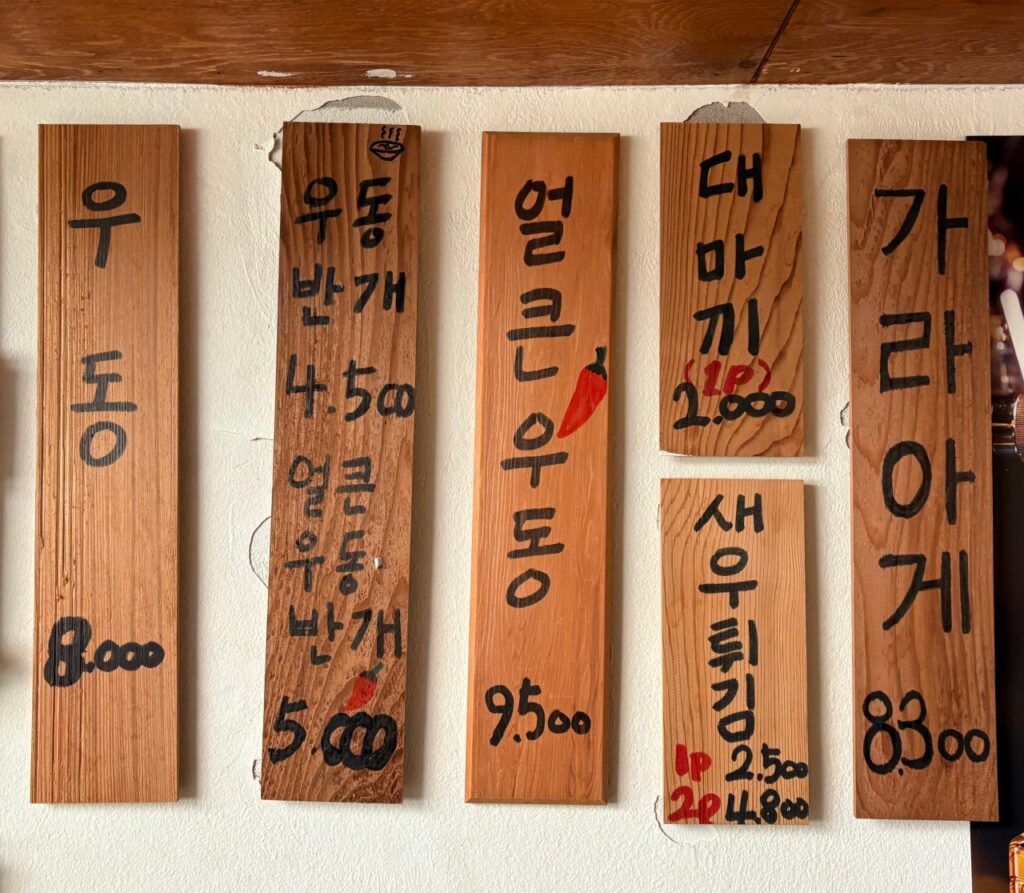 우동
8.000
우동
반개
4.500
얼큰
우동
반개
5.000
얼큰우동
9.500
대마끼
(1P)
2.000
새우튀김
1P 2.500
2P 4.800
가라아게
8.300